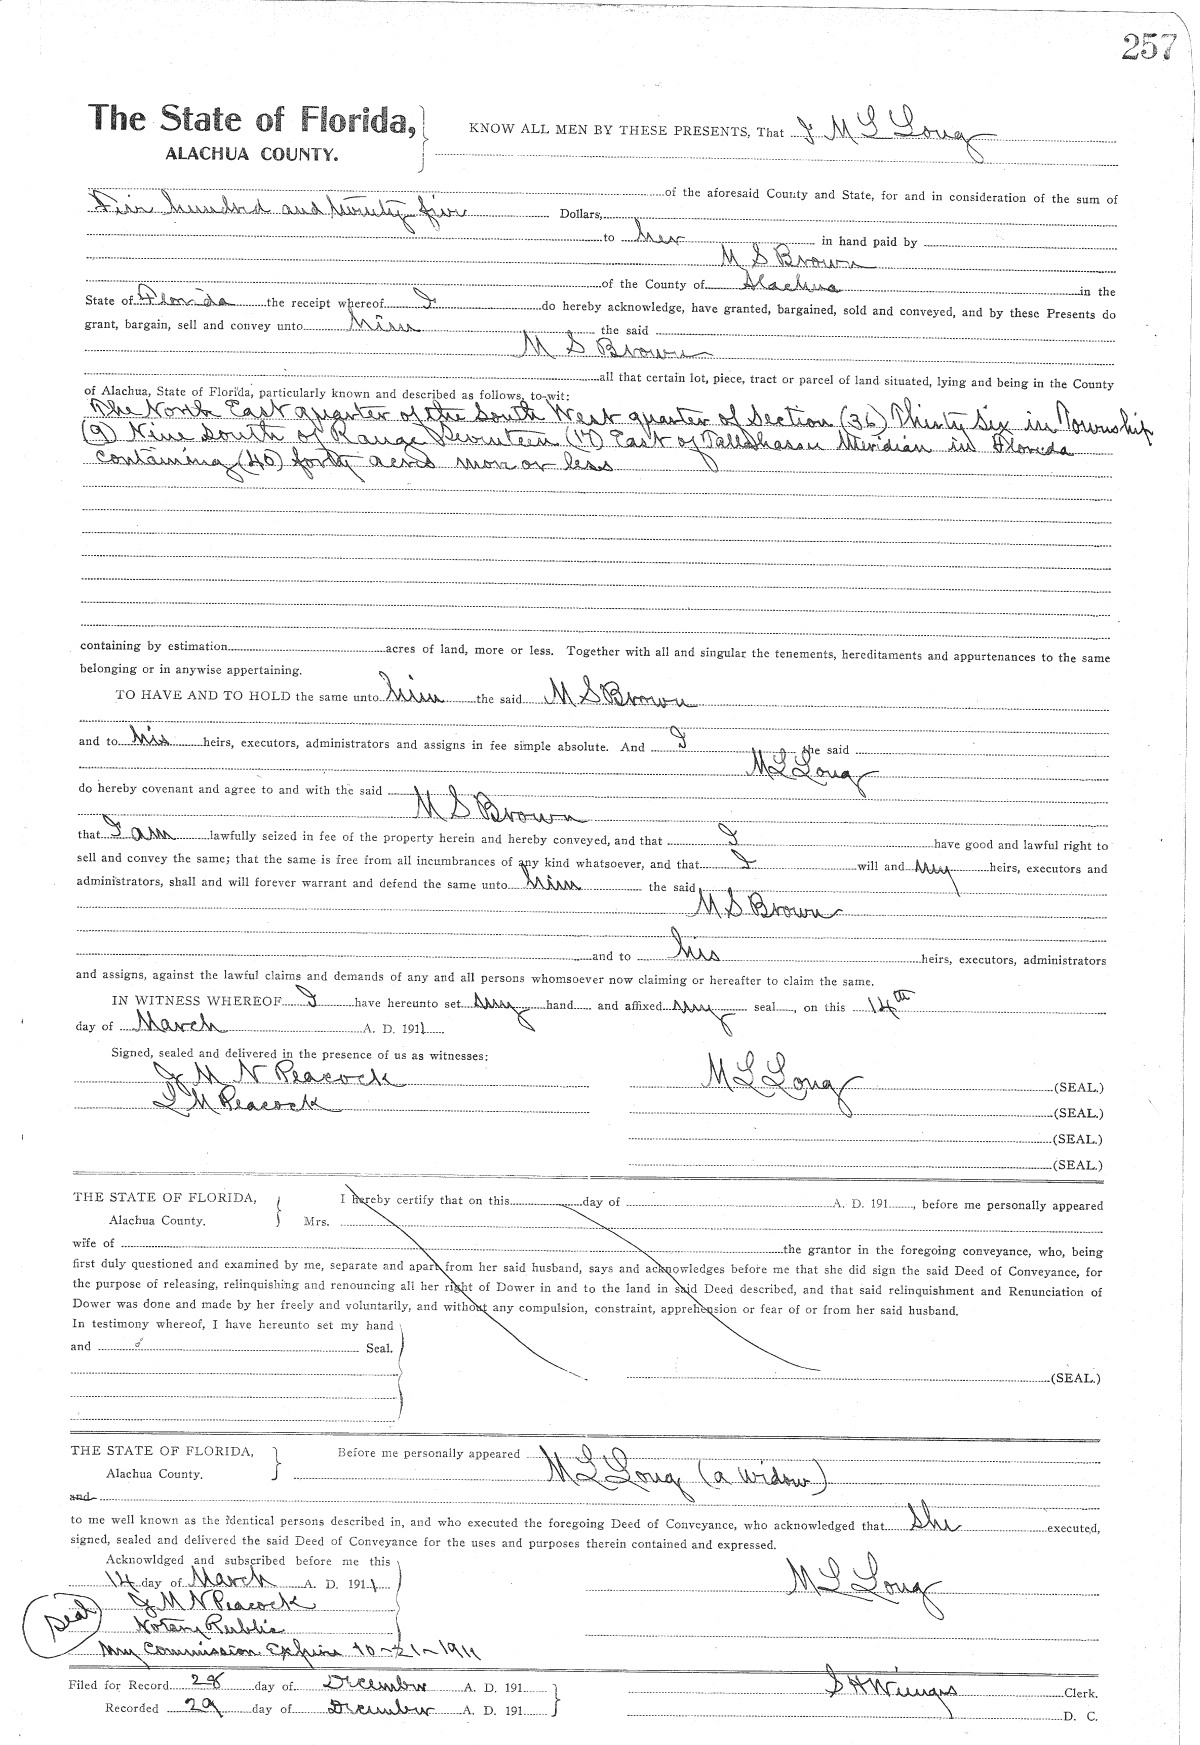 257
The State of Florida,
ALACHUA COUNTY.
KNOW ALL MEN BY THESE PRESENTS, That I M L Long
of the aforesaid County and State, for and in consideration of the sum of
Five hundred and twenty five Dollars,
to her in hand paid by
M S Brown
of the County of Alachua in the
State of Florida the receipt whereof I do hereby acknowledge, have granted, bargained, sold and conveyed, and by these Presents do
grant, bargain, sell and convey unto him the said
M S Brown
all that certain lot, piece, tract or parcel of land situated, lying and being in the County
of Alachua, State of Florida, particularly known and described as follows, to-wit:
The North East quarter of the South West quarter of Section (36) Thirty Six in Township
(9) Nine South of Range Seventeen (17) East of Tallahassee Meridian in Florida
Containing (40) forty acres more or less
containing by estimation acres of land, more or less. Together with all and singular the tenements, hereditaments and appurtenances to the same
belonging or in anywise appertaining.
TO HAVE AND TO HOLD the same unto him the said M S Brown
and to his heirs, executors, administrators and assigns in fee simple absolute. And I the said
M L Long
do hereby covenant and agree to and with the said
M S Brown
that I am lawfully seized in fee of the property herein and hereby conveyed, and that I have good and lawful right to
sell and convey the same; that the same is free from all incumbrances of any kind whatsoever, and that I will and my heirs, executors and
administrators, shall and will forever warrant and defend the same unto him the said
M S Brown
and to his heirs, executors, administrators
and assigns, against the lawful claims and demands of any and all persons whomsoever now claiming or hereafter to claim the same.
IN WITNESS WHEREOF I have hereunto set my hand and affixed my seal, on this 14th
day of March A. D. 1911
Signed, sealed and delivered in the presence of us as witnesses:
J M N Peacock M L Long (SEAL.)
L M Peacock (SEAL.)
(SEAL.)
(SEAL.)
THE STATE OF FLORIDA,
Alachua County.
I hereby certify that on this day of A. D. 191, before me personally appeared
Mrs.
wife of the grantor in the foregoing conveyance, who, being
first duly questioned and examined by me, separate and apart from her said husband, says and acknowledges before me that she did sign the said Deed of Conveyance, for
the purpose of releasing, relinquishing and renouncing all her right of Dower in and to the land in said Deed described, and that said relinquishment and Renunciation of
Dower was done and made by her freely and voluntarily, and without any compulsion, constraint, apprehension or fear of or from her said husband.
In testimony whereof, I have hereunto set my hand
and Seal.
(SEAL.)
THE STATE OF FLORIDA,
Alachua County.
Before me personally appeared
M L Long (a widow)
and
to me well known as the identical persons described in, and who executed the foregoing Deed of Conveyance, who acknowledged that She executed,
signed, sealed and delivered the said Deed of Conveyance for the uses and purposes therein contained and expressed.
Acknowldged and subscribed before me this
14 day of March A. D. 1911
M L Long
J M N Peacock
Seal
Notary Public
My Commission Expires 10-21-1911
Filed for Record 28 day of December A. D. 191
S H Wienges Clerk.
Recorded 29 day of December A. D. 191
D. C.